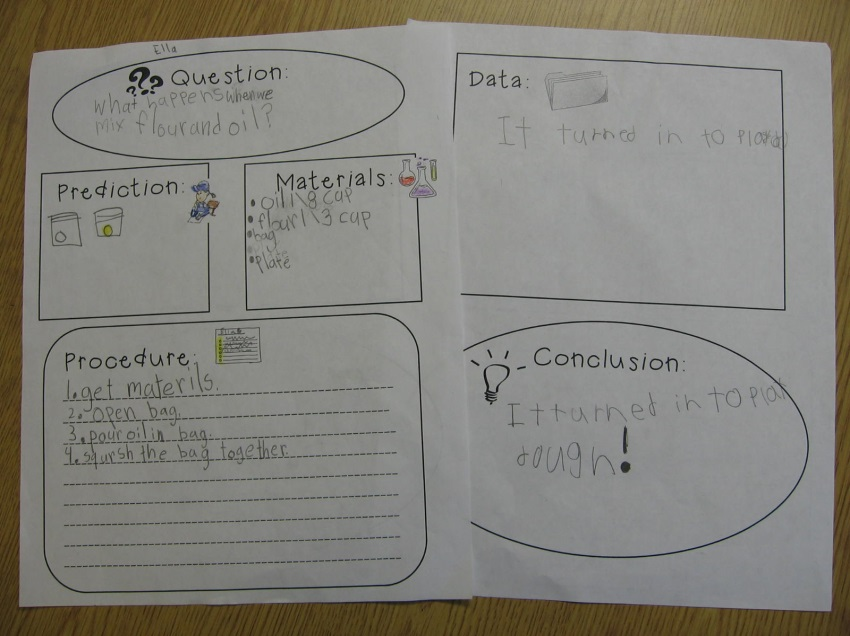 Ella
Question:
what happens when we
mix flour and oil?
Prediction:
Materials:
• oil 1\8 cup
• flour 1\3 cup
• bag
• plate
Procedure:
1. get materils.
2. open bag.
3. pour oil in bag.
4. sqursh the bag together.
Data:
It turned in to
Conclusion:
It turned in to plat
dough!